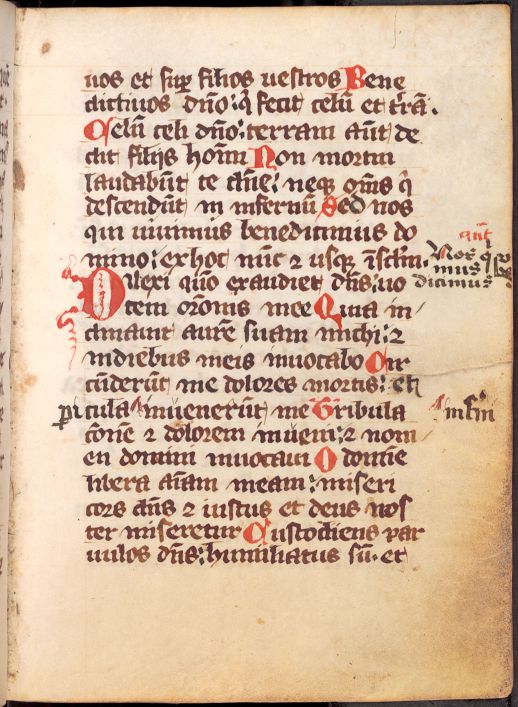 uos et sup filios uestros Bene
dictiuos dño: q̃ fecit celũ et trã.
Celũ celi dño: terram aũt de
dit filijs homĩ Non mortui
laudabũt te dñe: neqꝫ om̃s q̃
descendũt in infernũ Sed nos
qui uiuimus benedicimus do
mino: ex hoc nũc ⁊ usqꝫ ĩ sc̃lm̃.
Dilexi qm̃o exaudiet dñs: uo
cem orõnis mee Quia in
clinauit aure suam michi: ⁊
in diebus meis inuocabo Cir
cũderũt me dolores mortis: et
picula inuenerũt me Tribula
cõnẽ ⁊ dolorem inueni: ⁊ nom
en domini inuocaui O domine
libera aĩam meam: miseri
cors dñs ⁊ iustus et deus nos
ter miseretur Custodiens par
uulos dñs: humiliatus sũ. et
añt
Nos q
mus
dicimus
infni